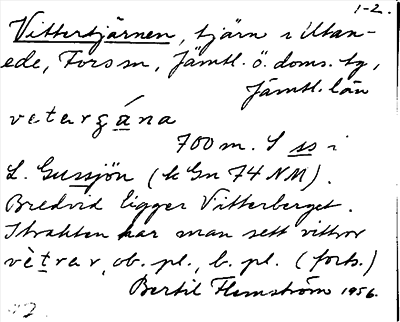 1-2.
Vittertjärnen, tjärn i Utan-
ede, Fors sn, Jämtl. ö. doms. tg,
Jämtl. län
vetarʒána
700 m. S ss i
L. Gussjön (k Gn 74 NM).
Bredvid ligger Vitterberget.
I trakten har man sett vittror
vètrar, ob. pl., b. pl. (forts.)
Bertil Flemström 1956.